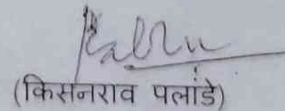 (किसनराव पलांडे)